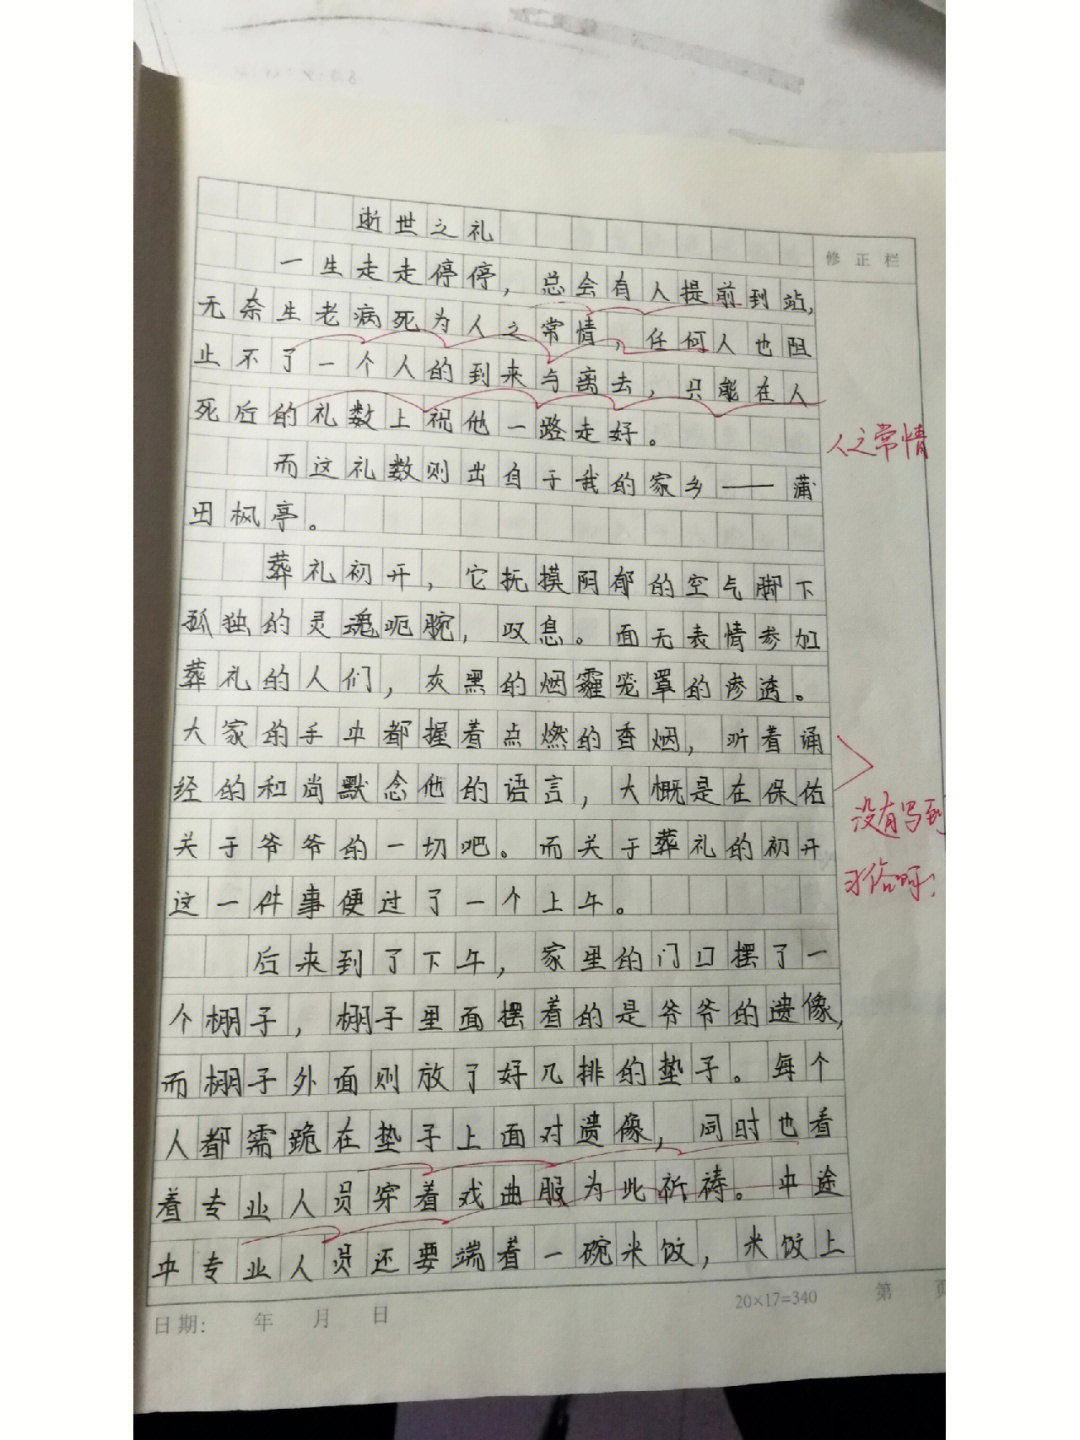 逝世之礼
修正栏
一生走走停停，总会有人提前到站，
无奈生老病死为人之常情，任何人也阻
止不了一个人的到来与离去，只能在人
死后的礼数上祝他一路走好。
人之常情
而这礼数则出自于我的家乡——莆
田枫亭。
葬礼初开，它抚摸阴郁的空气脚下
孤独的灵魂呃腕，叹息。面无表情参加
葬礼的人们，灰黑的烟霾笼罩的渗透。
大家的手中都握着点燃的香烟，听着诵
经的和尚默念他的语言，大概是在保佑
没有写到
关于爷爷的一切吧。而关于葬礼的初开
习俗呀！
这一件事便过了一个上午。
后来到了下午，家里的门口摆了一
个棚子，棚子里面摆着的是爷爷的遗像，
而棚子外面则放了好几排的垫子。每个
人都需跪在垫子上面对遗像，同时也看
着专业人员穿着戏曲服为此祈祷。中途
中专业人员还要端着一碗米饭，米饭上
日期： 年 月 日
20×17=340
第 页